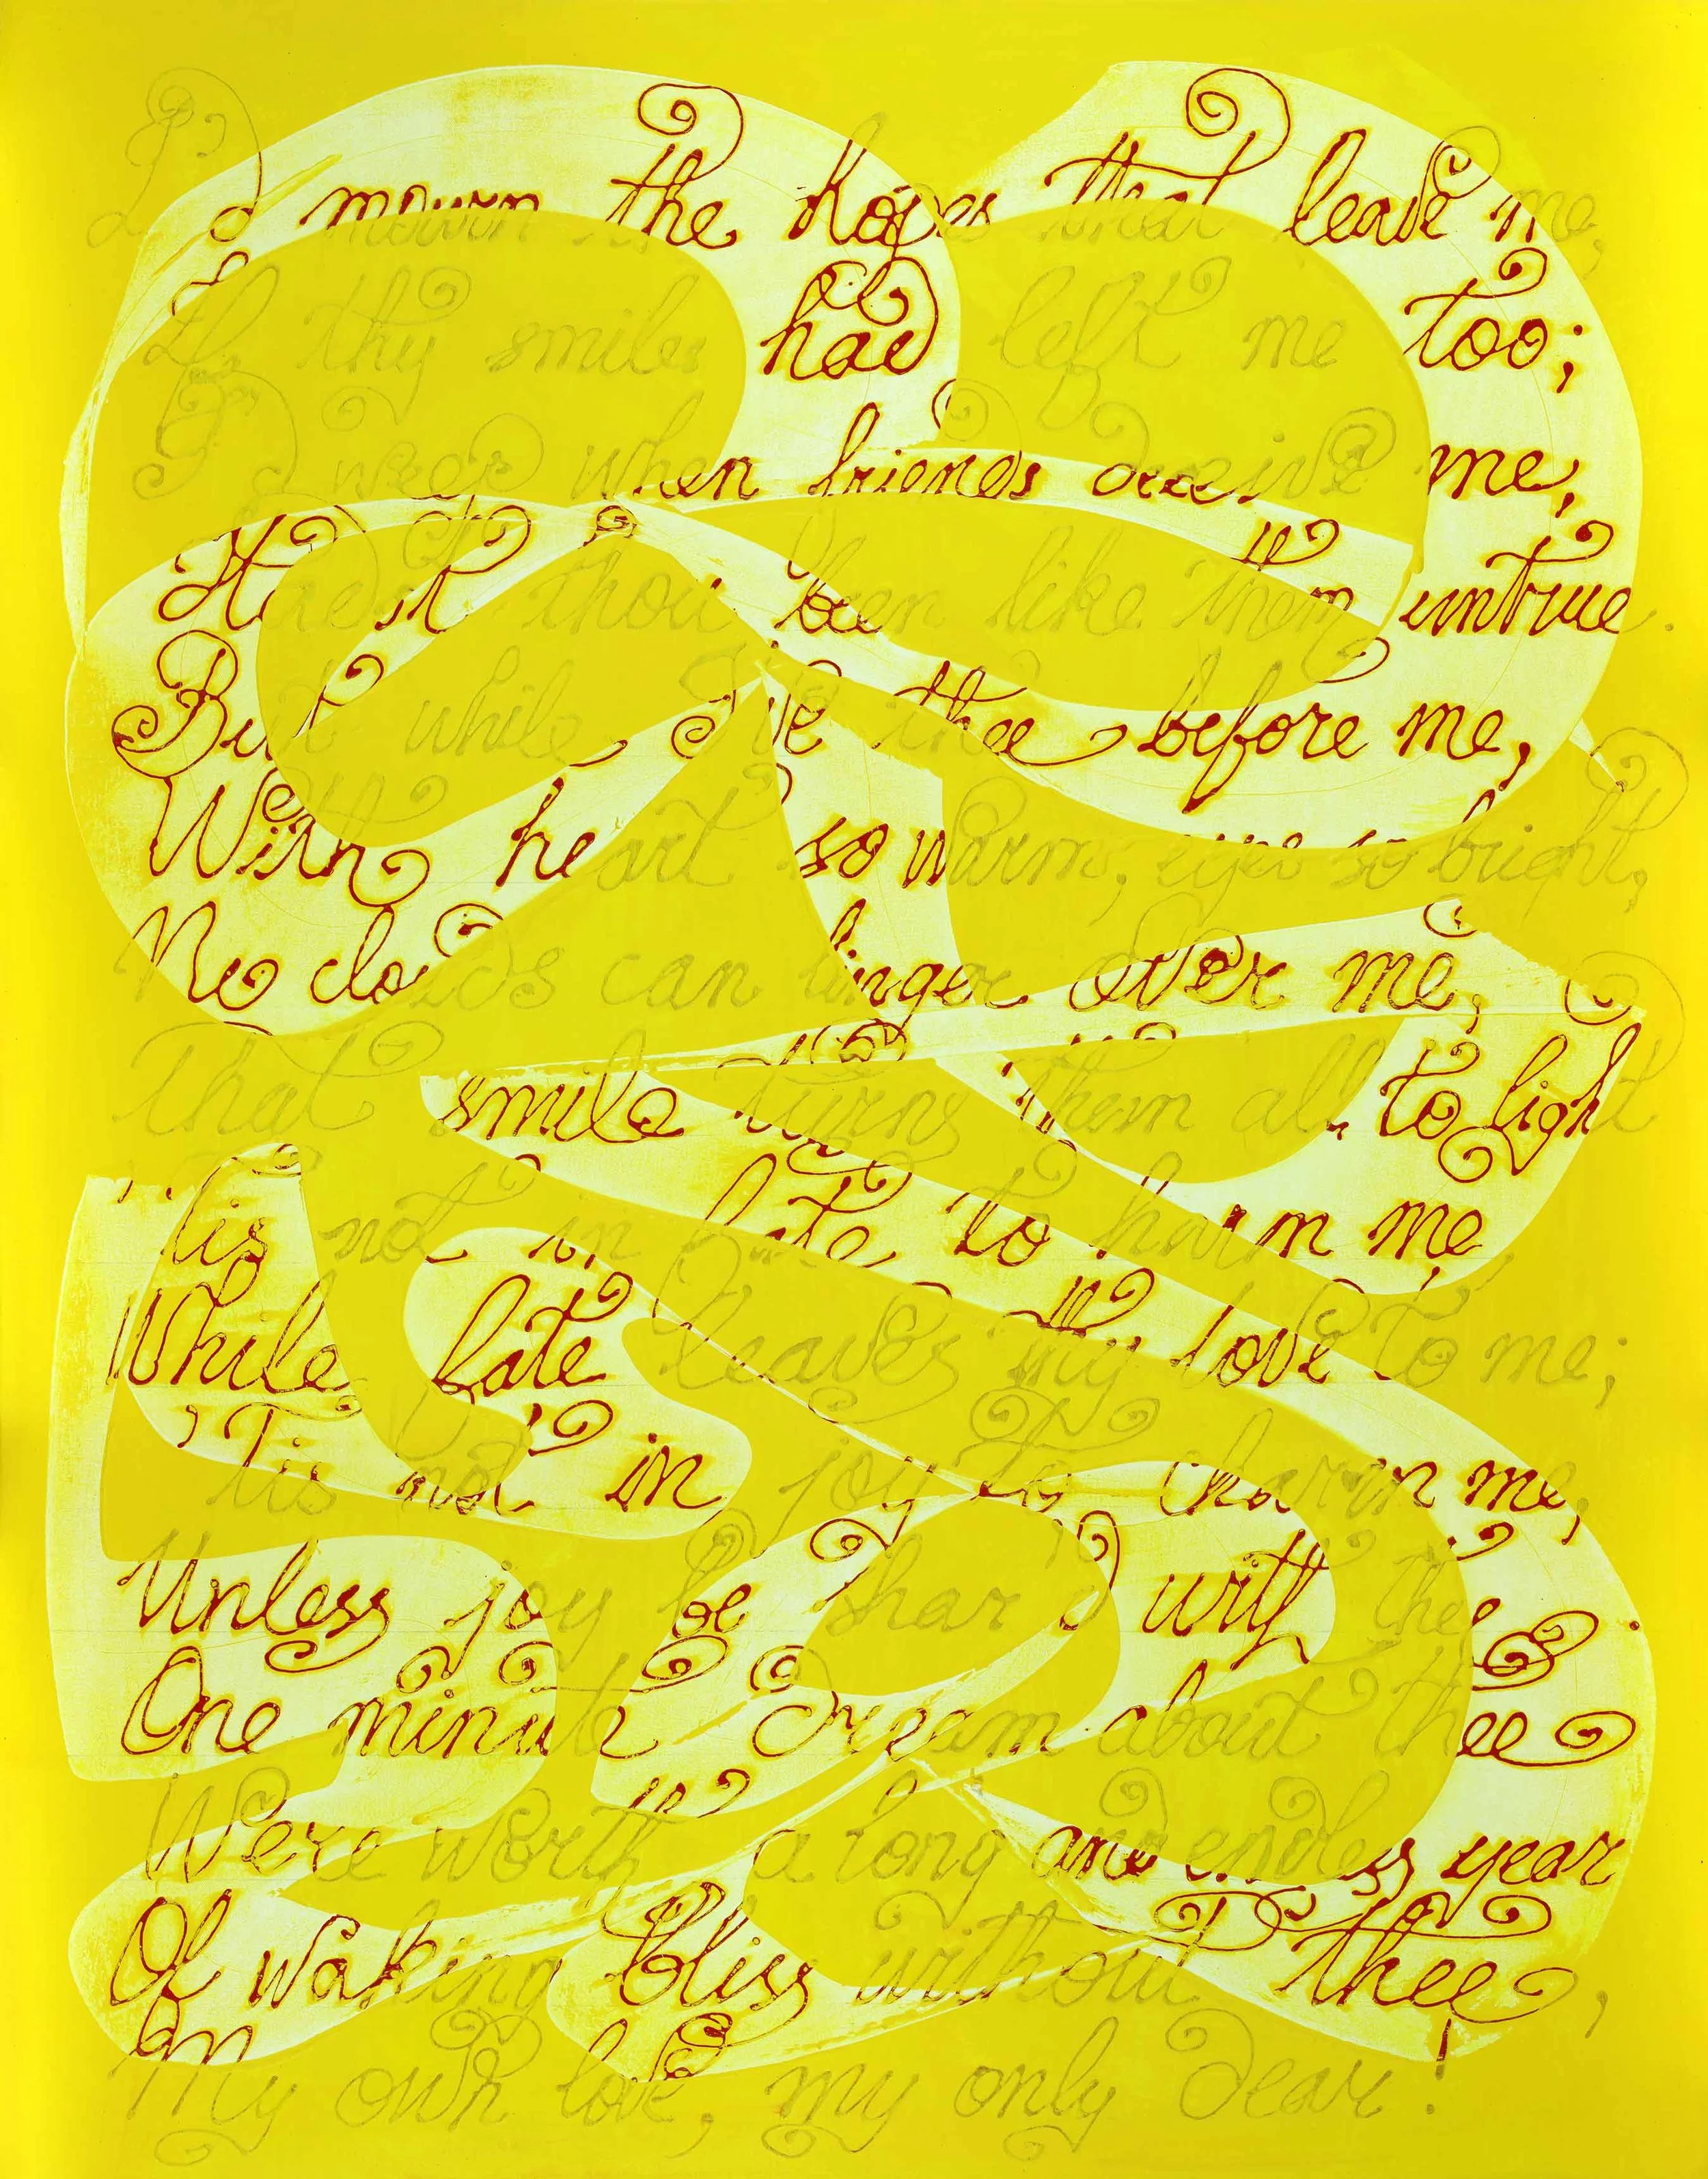 I'd mourn the hopes that leave me,
If thy smiles had left me too;
I'd weep when friends deceive me,
Hadst thou been like them untrue.
But while I've thee before me,
With heart so warm, eyes so bright,
No clouds can linger over me,
That smile turns them all to light
'Tis not in fate to harm me,
While fate leaves thy love to me;
'Tis not in joy to charm me,
Unless joy be shar'd with thee.
One minute's dream about thee
Were worth a long and endless year
Of waking bliss without thee,
My own love, my only dear!